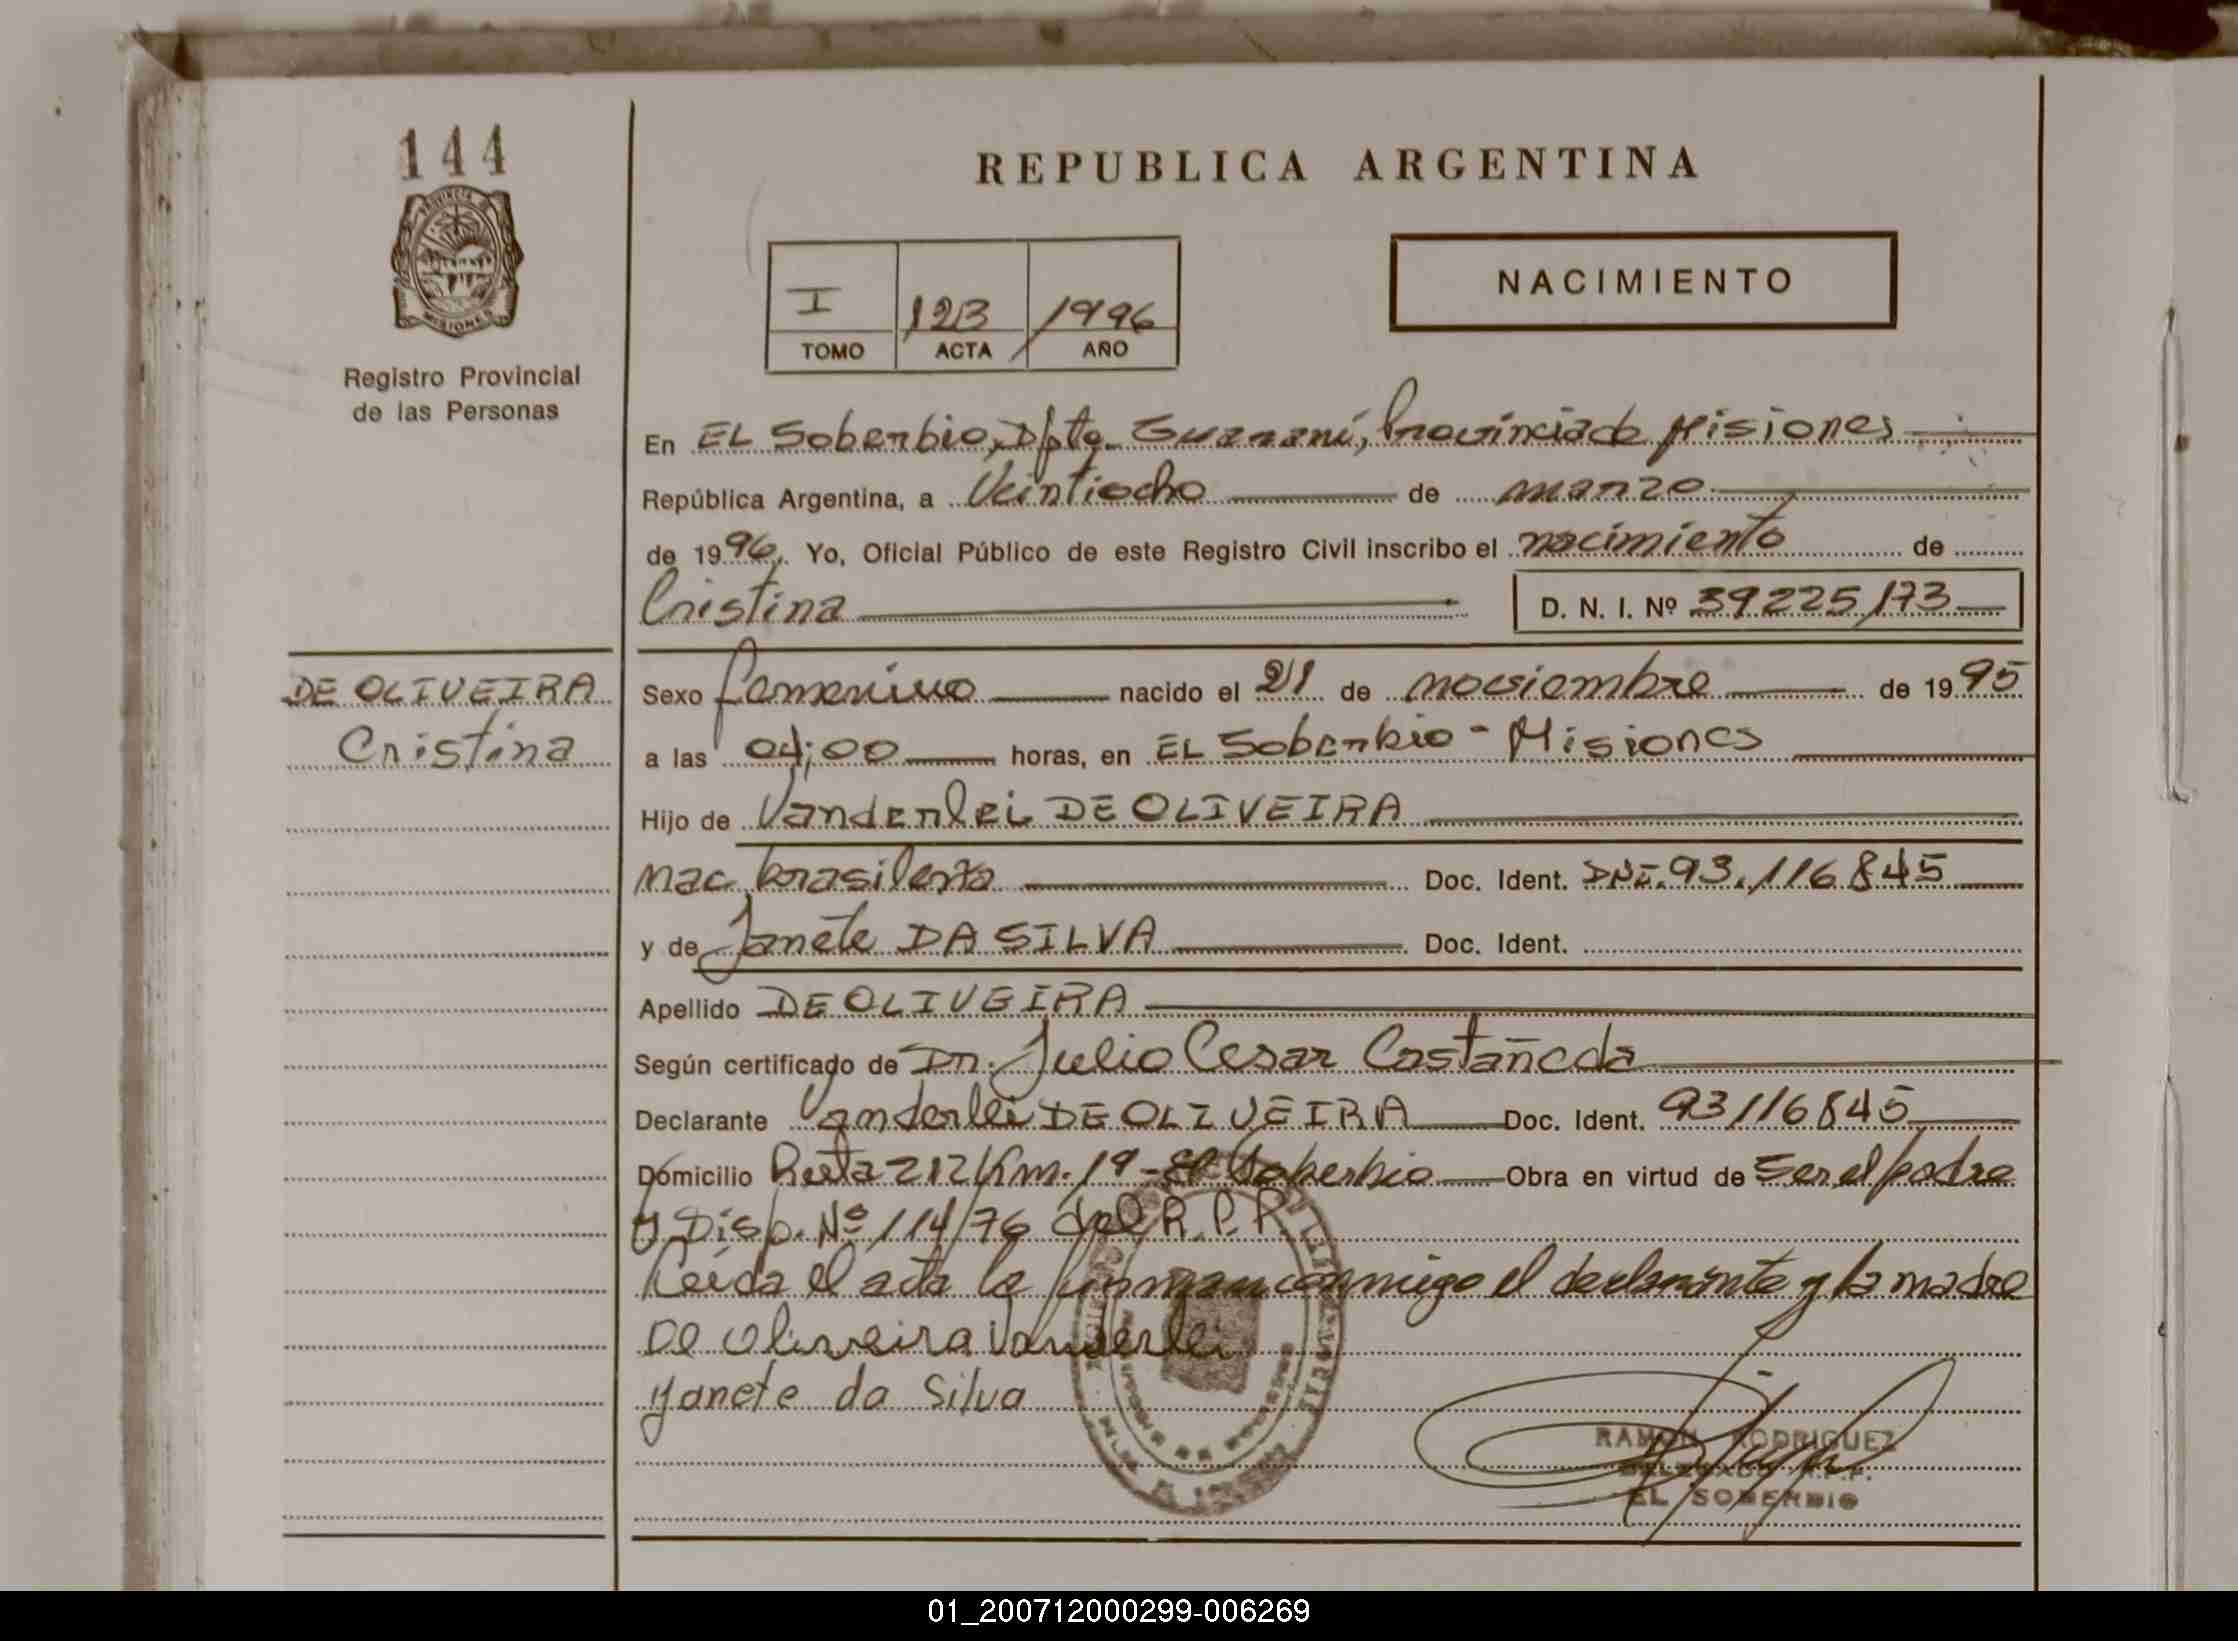 144
PROVINCIA DE
MISIONES
Registro Provincial
de las Personas
REPUBLICA ARGENTINA
I 123 1996
TOMO ACTA AÑO
NACIMIENTO
En EL Soberbio, Dpto. Guaraní, Provincia de Misiones
República Argentina, a Veintiocho de marzo
de 1996. Yo, Oficial Público de este Registro Civil inscribo el nacimiento de
Cristina D. N. I. Nº 39225173
DE OLIVEIRA
Cristina
Sexo femenino nacido el 21 de noviembre de 1995
a las 04:00 horas, en EL Soberbio - Misiones
Hijo de Vanderlei DE OLIVEIRA
nac. brasileña Doc. Ident. DNI. 93.116845
y de Janete DA SILVA Doc. Ident.
Apellido DE OLIVEIRA
Según certificado de Dr. Julio Cesar Castañeda
Declarante Vanderlei DE OLIVEIRA Doc. Ident. 93116845
Domicilio Ruta 212 Km. 19 - El Soberbio Obra en virtud de ser el padre
y Disp. Nº 114/76 del R.P.P.
Leida el acta la firman conmigo el declarante y la madre
De Oliveira Vanderlei
yanete da Silva
RAMON RODRIGUEZ
DELEGADO R.P.P.
EL SOBERBIO
01_200712000299-006269